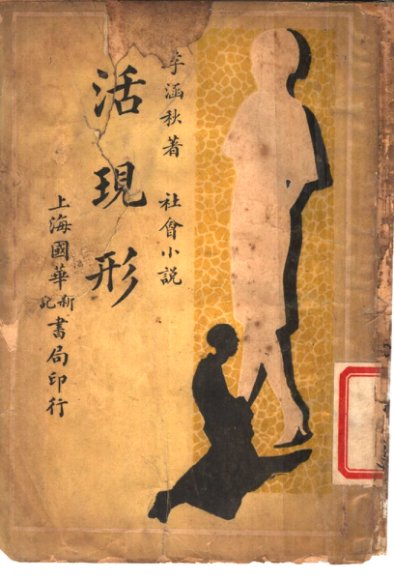 李涵秋著 社會小説
活現形
上海國華新記書局印行